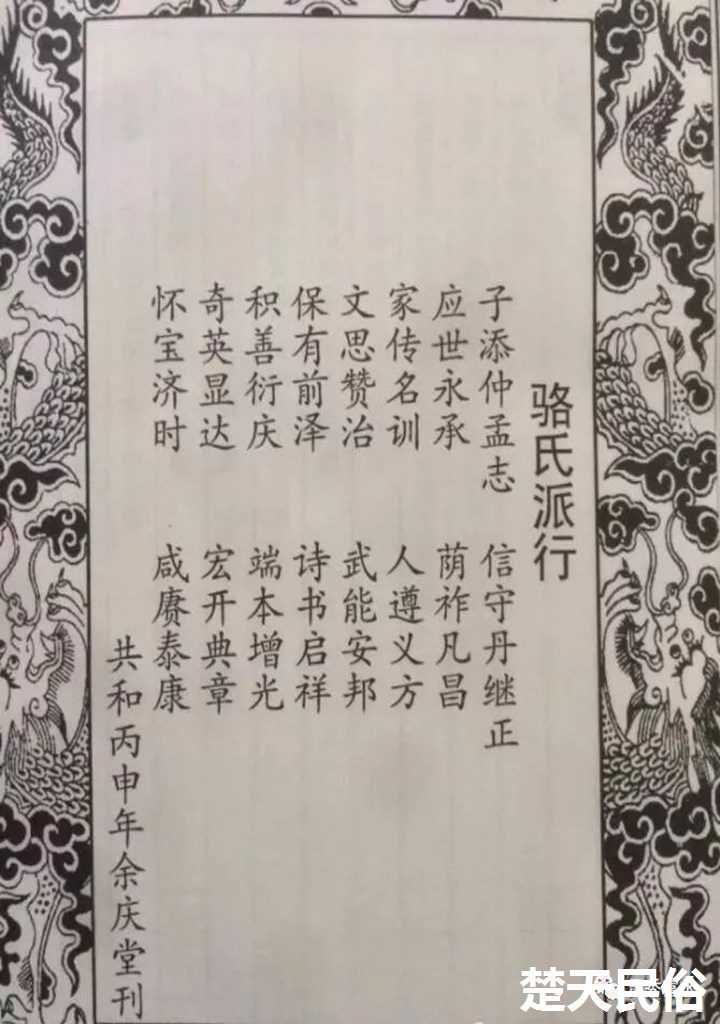 骆氏派行
子添仲孟志 信守丹继正
应世永承 荫祚凡昌
家传名训 人遵义方
文思赞治 武能安邦
保有前泽 诗书启祥
积善衍庆 端本增光
奇英显达 宏开典章
怀宝济时 咸赓泰康
共和丙申年余庆堂刊
楚天民俗